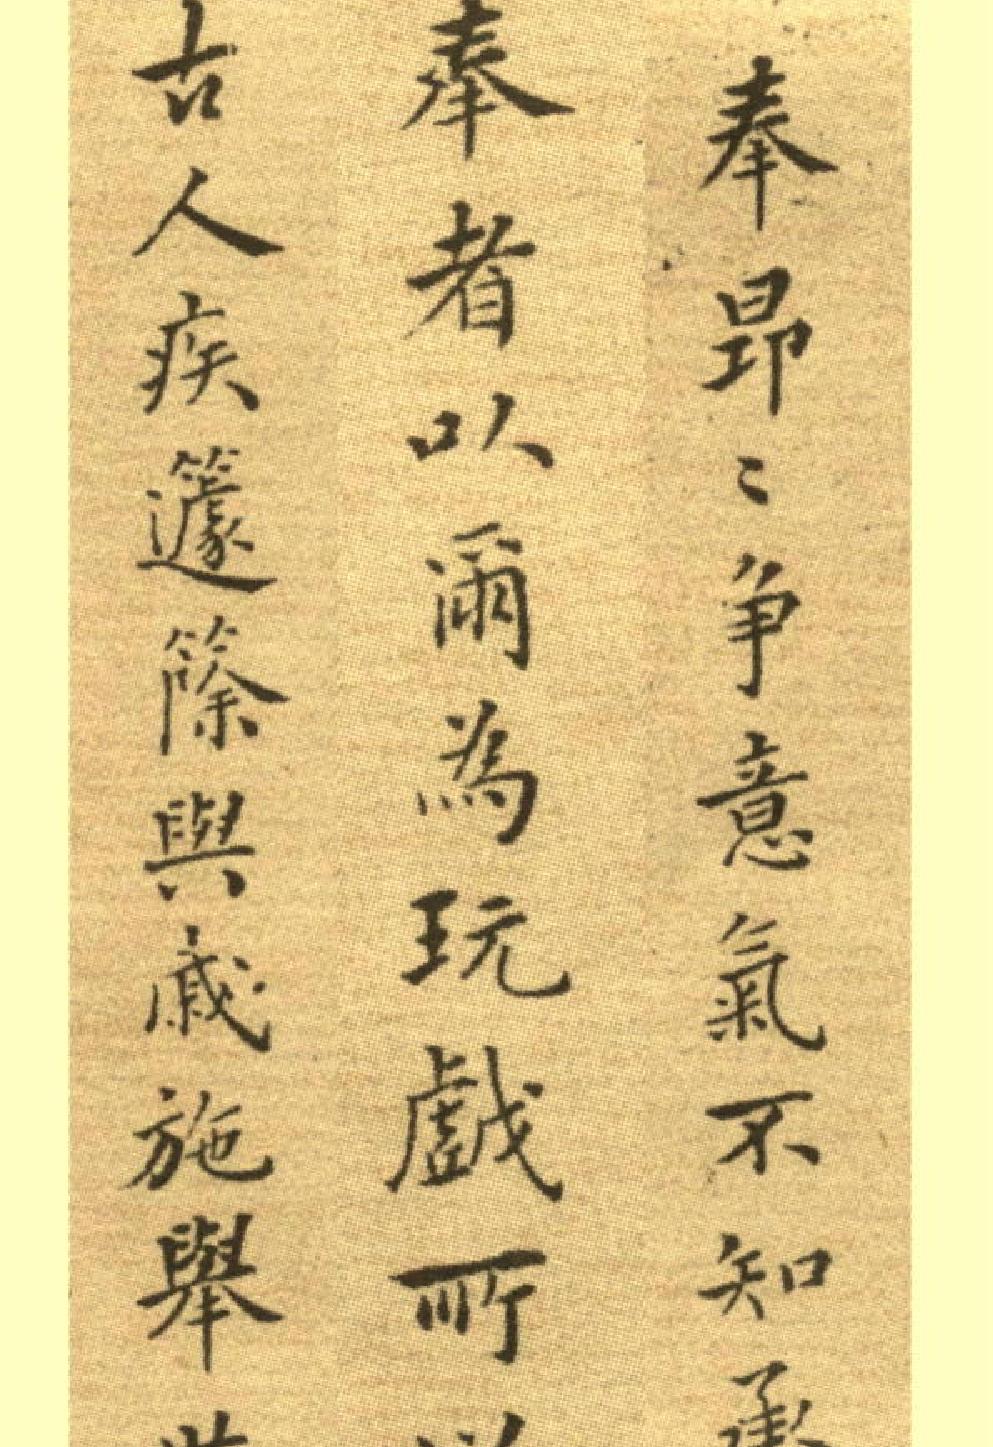 奉昂〻争意氣不知承
奉者以爾為玩戲所
古人疾籧篨與戚施舉